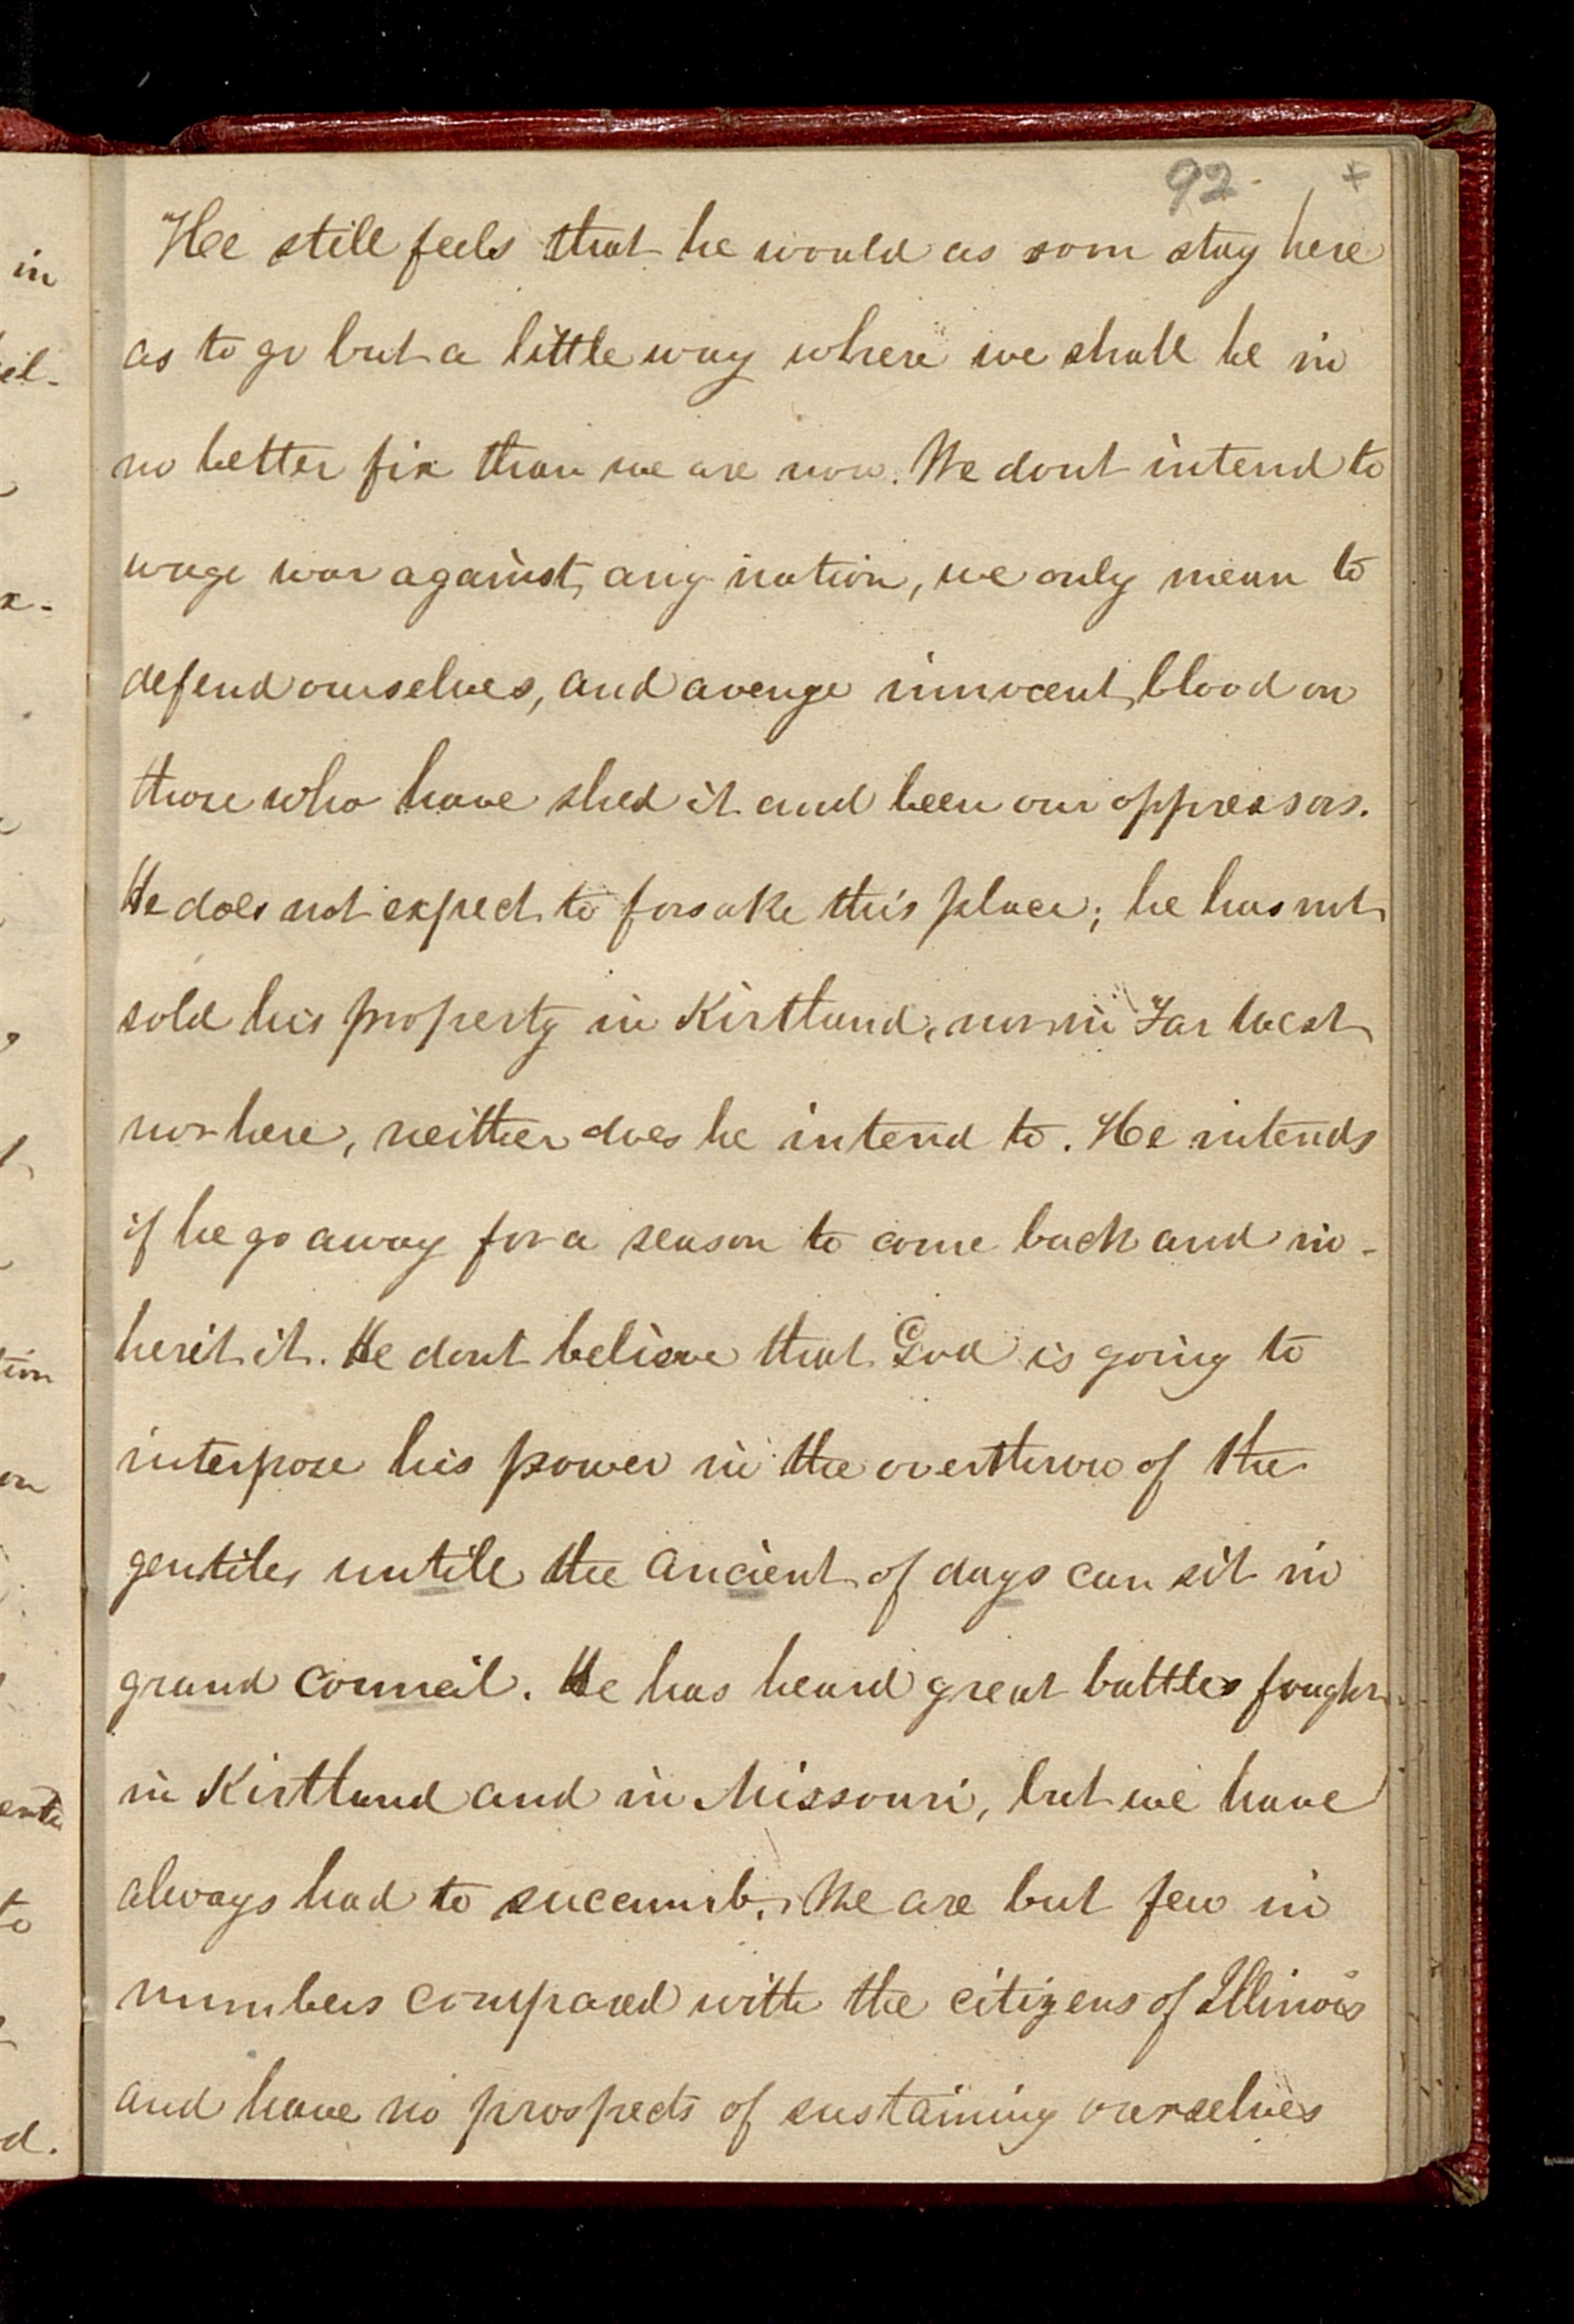 92. +
in
He still feels that he would as soon stay here
as to go but a little way where we shall be in
no better fix than we are now. We dont intend to
wage war against, any nation, we only mean to
defend ourselves, and avenge innocent blood on
those who have shed it and been our oppressors.
He does not expect to forsake this place; he has not
sold his property in Kirtland, nor in Far West
nor here, neither does he intend to. He intends
if he go away for a season to come back and in-
herit it. He dont believe that God is going to
interpose his power in the overthrow of the
gentiles untill the Ancient of days can sit in
grand council. He has heard great battles fought
in Kirtland and in Missouri, but we have
always had to succumb. We are but few in
numbers compared with the citizens of Illinois
and have no prospects of sustaining ourselves
to
d.